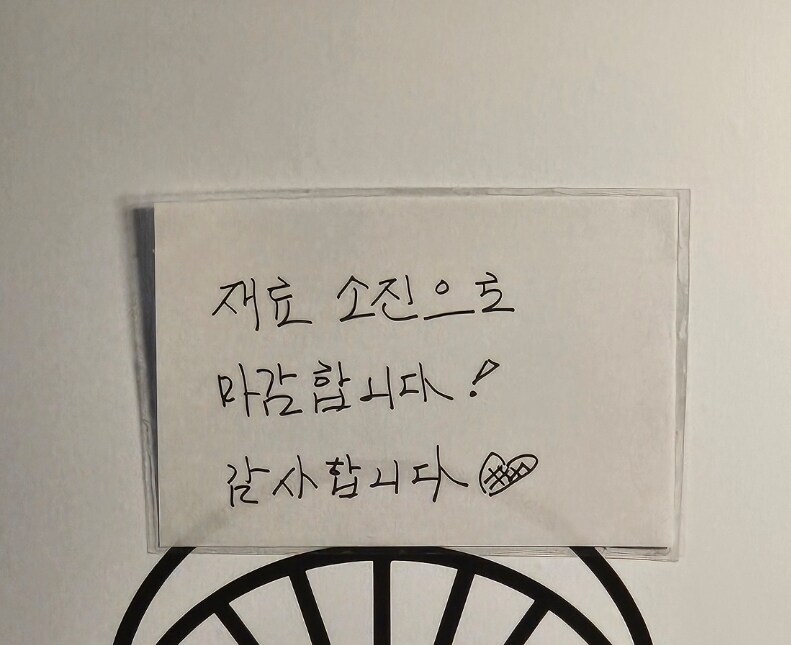 재료 소진으로
마감합니다!
감사합니다♡